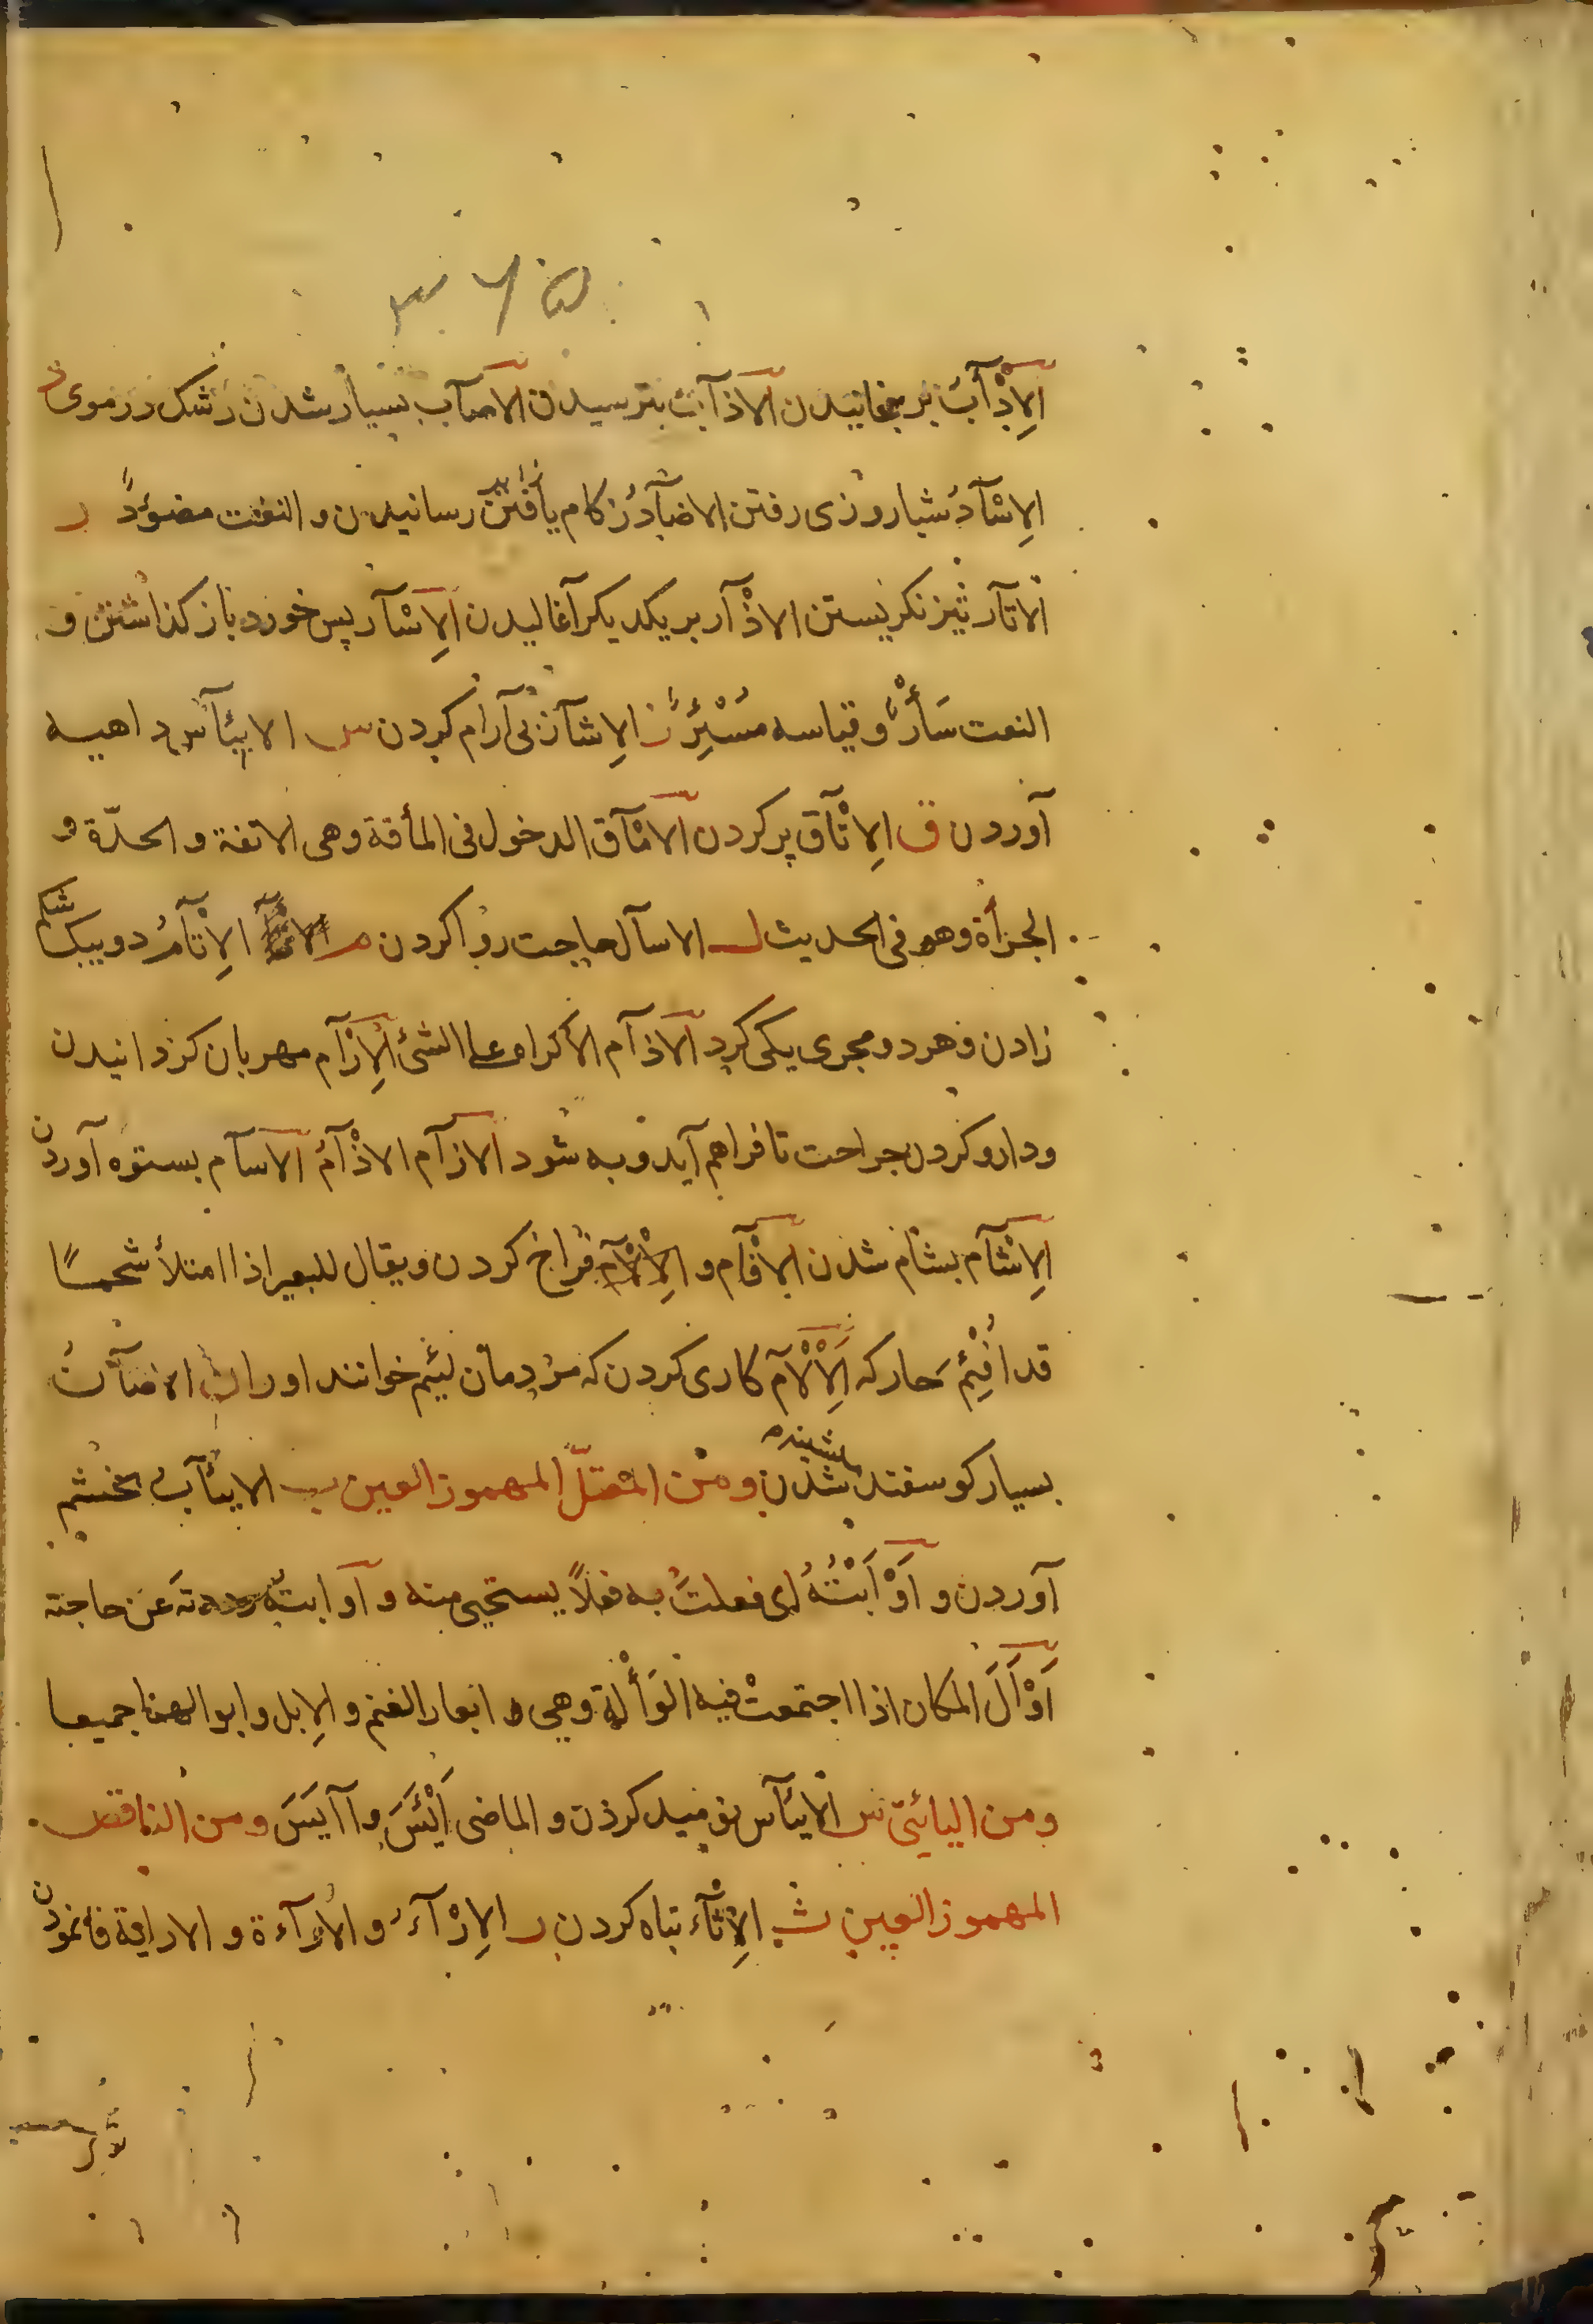 الإِدْآبُ برنجانیدن الاذآبُ بترسیدن الاصآب بسیار شدن رشک در موی د
الإسْآدُ شبا روزی رفتن الاضآدُ زکام یافتن رسانیدن و النعت مضؤدٌ ر
الاتآر تیز نکریستن الاذْآر بر یکدیکر آغالیدن الإسْآر پس خورد باز کذاشتن و
النعت سَأّرٌ و قیاسه مُسْئِرٌ ز الإشآز بی آرام کردن س الابئآس داهیه
آوردن ق الإتْآق پر کردن الامْآق الدخول فی المأقة وهی الانفة و الحدّة و
الجرأة وهو فی الحدیث ل الاسآل حاجت روا کردن م الإتْآمُ دو بیک شکم
زادن و هر دو مجری یکی کرد الاذآم الاکراه علی الشئ الإرْآم مهربان کردانیدن
و دارو کردن جراحت تا فراهم آید و به شود الازآم الاذْآمُ الاسآم بستوه آوردن
الإشْآم بشام شدن الافْآم و الإلْآم فراخ کردن ویقال للبعیر اذا امتلأ شحمًا
قد اُفْئِمَ حارکه الإلْآم کاری کردن که مردمان لئیم خوانند اورا ن الاضآنُ
بسیار کوسفند میشینه شدن ومن المعتلّ المهموز العین ب الایئآب بخشم
آوردن و أَوْأَبْتُهُ ای فعلتُ به فعلاً یستحیی منه و آوابتُه رددته عن حاجته
أَوْأَلَ المکان اذا اجتمعتْ فیه الوَأْلة وهی ابعار الغنم و الإبل و ابوالها جمیعا
ومن الیائی س الایئآس نومید کردن و الماضی أَیْئَسَ و آیَسَ ومن الناقص
المهموز العین ث الإثْآء تباه کردن ر الإرْآءُ و الارآءة و الارایة فانمودن